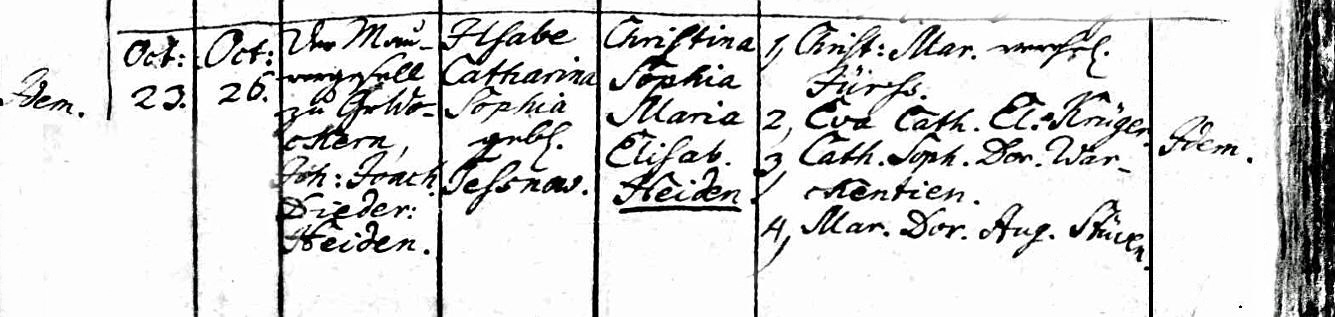 Idem.
Oct:
23.
Oct:
26.
Der Mau-
rergesell
zu
ckern,
Joh: Joach
Dieder:
Heiden.
Ilsabe
Catharina
Sophia
gebh.
Tessnow.
Christina
Sophia
Maria
Elisab.
Heiden
1, Christ: Mar.
Fürss.
2, Eva Cath. El. Krüger.
3, Cath. Soph. Dor. War-
ckentien.
4, Mar. Dor. Aug. Stüxn.
Idem.